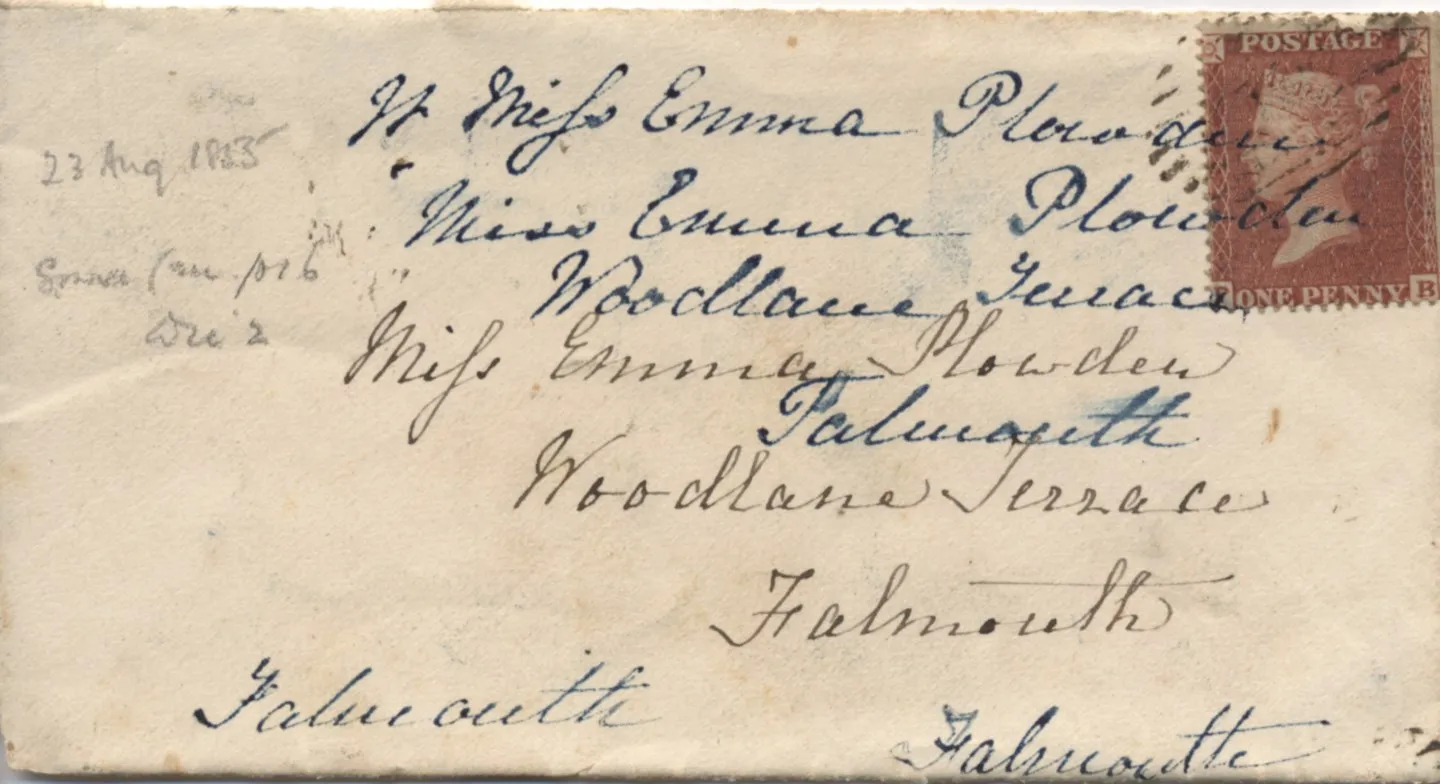 POSTAGE
Miss Emma Plowden
23 Aug 1855
Miss Emma Plowden
Woodlane Terrace
Miss Emma Plowden
Falmouth
Woodlane Terrace
Falmouth
Falmouth
Falmouth
ONE PENNY B